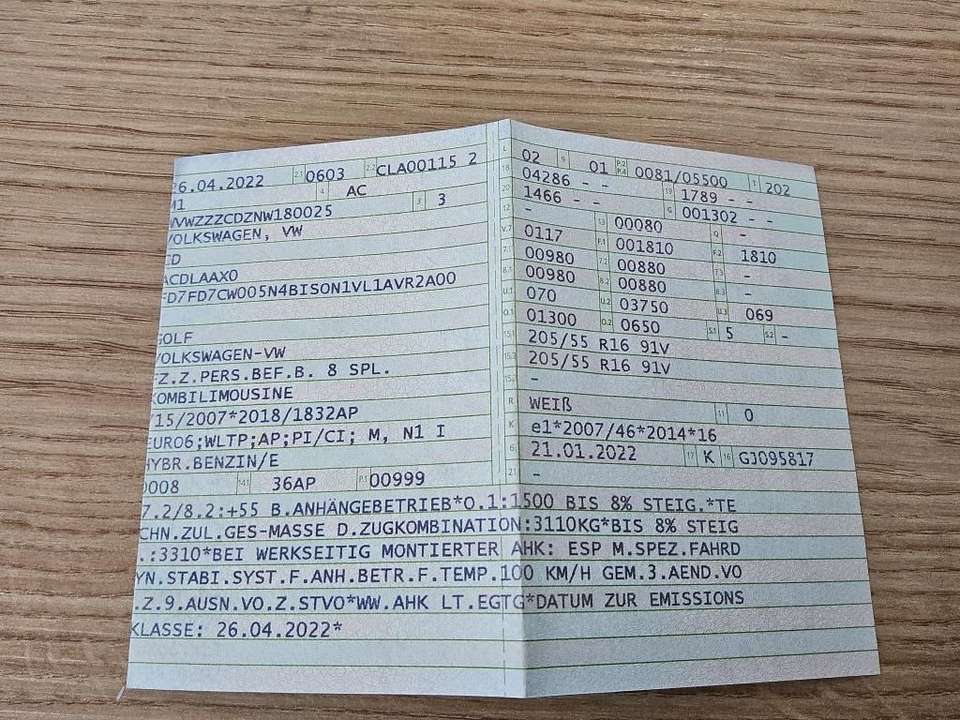 26.04.2022 2.1 0603 2.2 CLA00115 2
M1 4 AC
WVWZZZCDZNW180025 3 3
VOLKSWAGEN, VW
CD
ACDLAAX0
FD7FD7CW005N4BISON1VL1AVR2A00
GOLF
VOLKSWAGEN-VW
FZ.Z.PERS.BEF.B. 8 SPL.
KOMBILIMOUSINE
715/2007*2018/1832AP
EURO6;WLTP;AP;PI/CI; M, N1 I
HYBR.BENZIN/E
0008 14.1 36AP P.1 00999
L 02 9 01 P.2 P.4 0081/05500 T 202
18 04286 - - 19 1789 - -
20 1466 - - G 001302 - -
12 - 13 00080 Q -
V.7 0117 F.1 001810 F.2 1810
7.1 00980 7.2 00880 7.3 -
8.1 00980 8.2 00880 8.3 -
U.1 070 U.2 03750 U.3 069
O.1 01300 O.2 0650 S.1 5 S.2 -
15.1 205/55 R16 91V
15.2 205/55 R16 91V
15.3 -
R WEIß 11 0
K e1*2007/46*2014*16
6 21.01.2022 17 K 16 GJ095817
21 -
7.2/8.2:+55 B.ANHÄNGEBETRIEB*O.1:1500 BIS 8% STEIG.*TE
CHN.ZUL.GES-MASSE D.ZUGKOMBINATION:3110KG*BIS 8% STEIG
.:3310*BEI WERKSEITIG MONTIERTER AHK: ESP M.SPEZ.FAHRD
YN.STABI.SYST.F.ANH.BETR.F.TEMP.100 KM/H GEM.3.AEND.VO
.Z.9.AUSN.VO.Z.STVO*WW.AHK LT.EGTG*DATUM ZUR EMISSIONS
KLASSE: 26.04.2022*